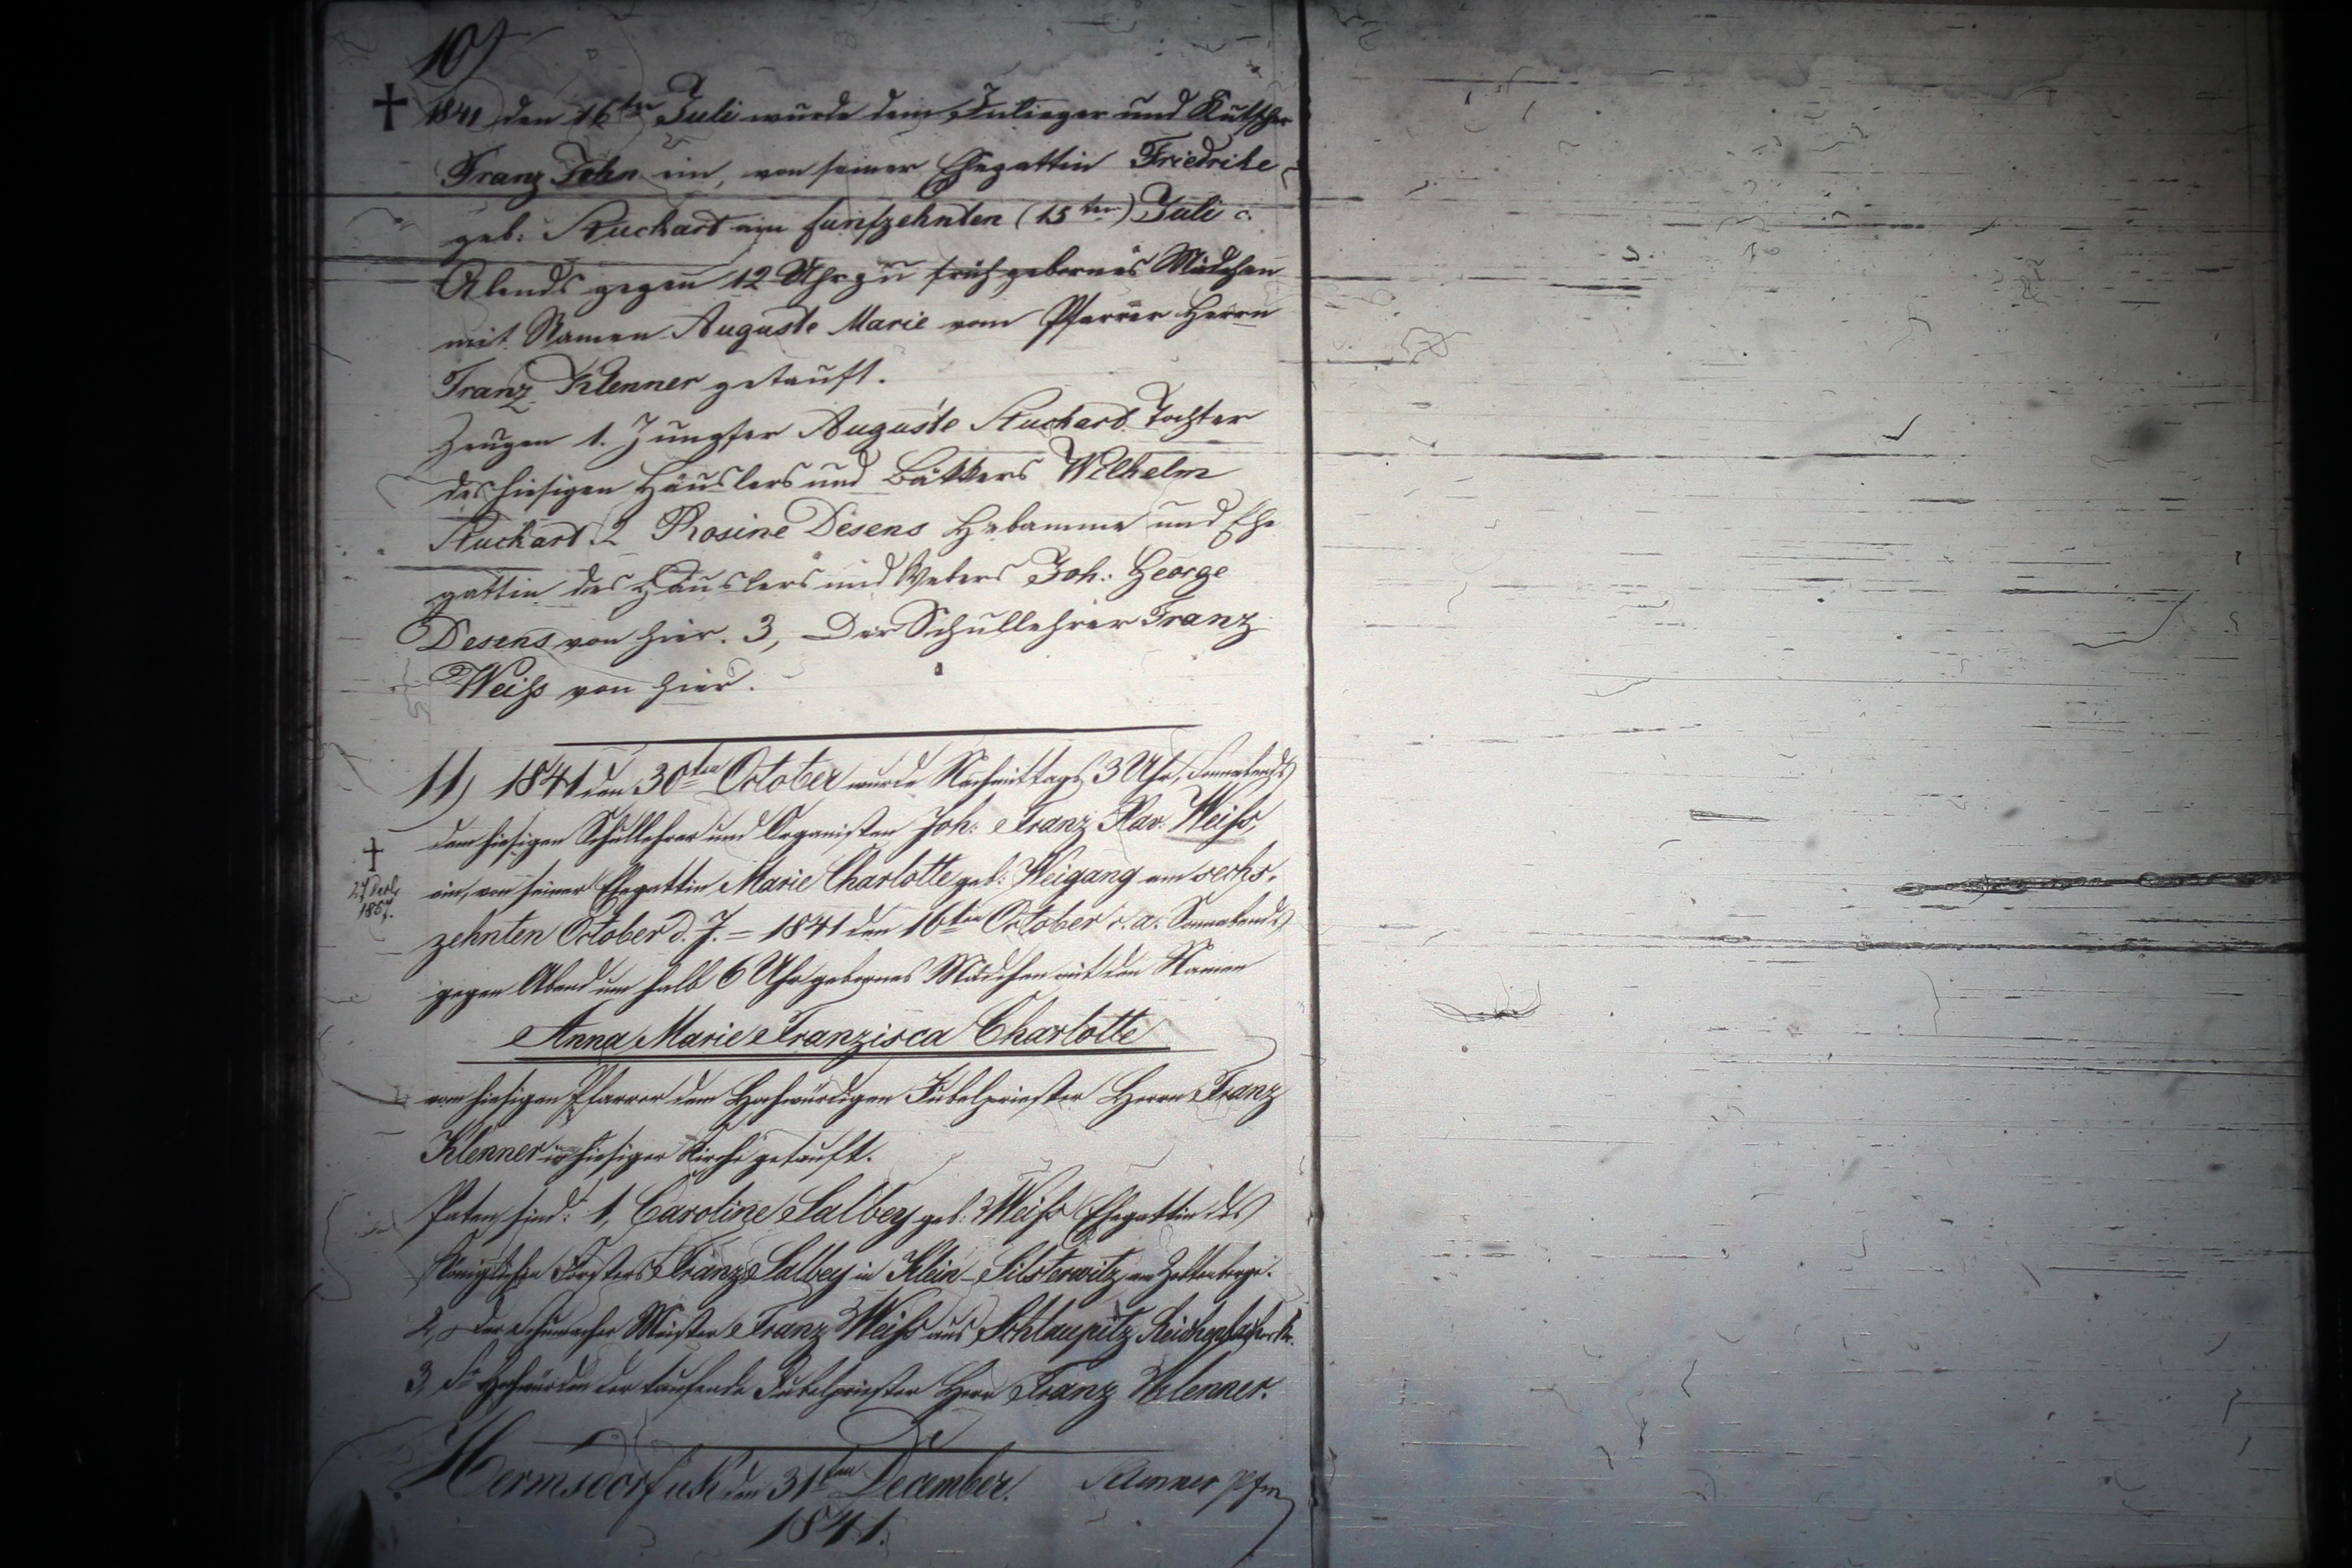 10)
† 1841 den 16ten Juli wurde dem Inlieger und Kutscher
Franz John ein, von seiner Ehegattin Friedrike
geb: Kuckart am funfzehnten (15ten) Juli c.
Abends gegen 12 Uhr zu früh gebornes Mädchen
mit Namen Auguste Marie vom Pfarrer Herrn
Franz Klenner getauft.
Zeugen 1. Jungfer Auguste Kuckart Tochter
des hiesigen Häuslers und Bäkkers Wilhelm
Kuckart 2 Rosine Desens Hebamme und Ehe
gattin des Häuslers und Webers Joh: George
Desens von hier. 3, Der Schullehrer Franz
Weiß von hier.
11) 1841 den 30ten October wurde Nachmittags 3 Uhr, Sonnabends
dem hiesigen Schullehrer und Organisten Joh: Franz Xav: Weiß,
† 1857.
ein, von seiner Ehegattin Marie Charlotte geb: Weigang am sechs-
zehnten October d. J. = 1841 den 16ten October c. a. Sonnabends
gegen Abend um halb 6 Uhr gebornes Mädchen mit den Namen
Anna Marie Franzisca Charlotte
vom hiesigen Pfarrer dem Hochwürdigen Jubelpriester Herrn Franz
Klenner in hiesiger Kirche getauft.
Paten sind: 1, Caroline Salbey geb: Weiß Ehegattin des
Königlichen Försters Franz Salbey in Klein-Silsterwitz am Zobtenberge.
2, Der Schumacher Meister Franz Weiß aus Schlaupitz Reichenbacher Kr.
3, Sr Hochwürden der taufende Jubelpriester Herr Franz Klenner.
Hermsdorf u/K den 31ten December. Klenner Pfrr
1841.